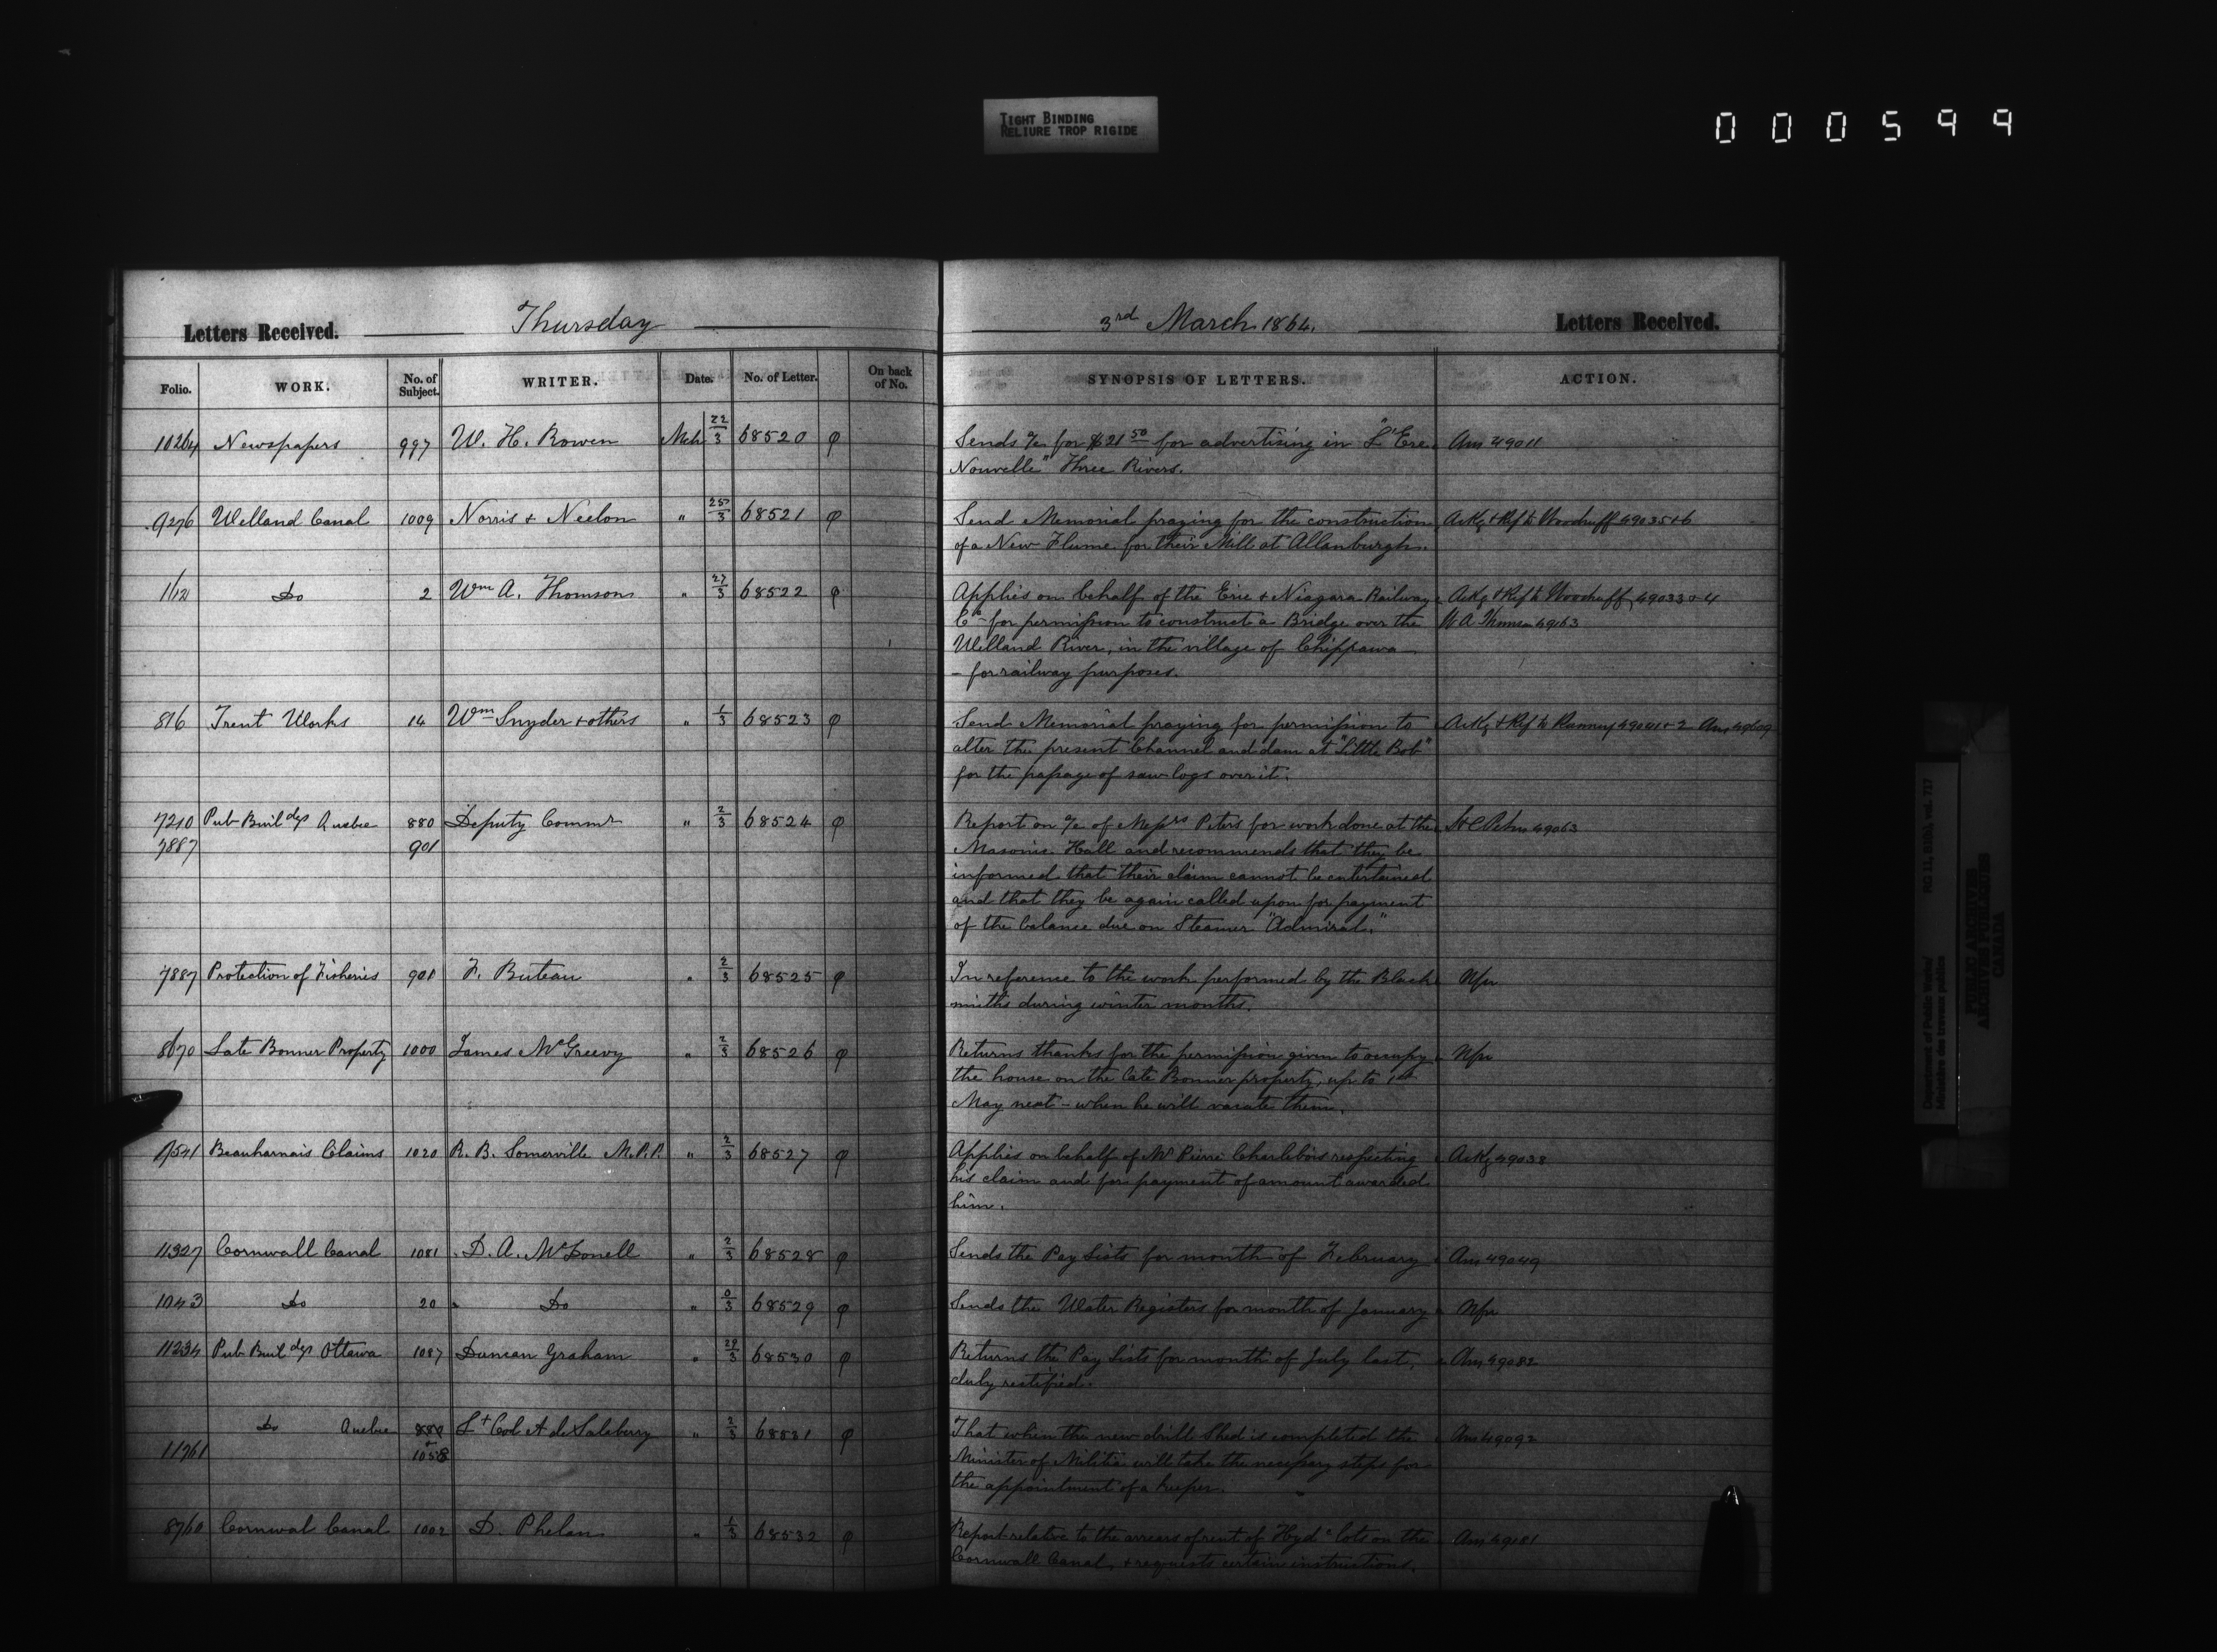 TIGHT BINDING
RELIURE TROP RIGIDE
000599
Letters Received. Thursday 3rd March 1864. Letters Received.
Folio. WORK. No. of Subject. WRITER. Date. No. of Letter. On back of No. SYNOPSIS OF LETTERS. ACTION.
10264 Newspapers 997 W. H. Rowen Mch 22/3 68520 φ Sends a/c for $21 50 for advertising in "L'Ere Ans 49011
Nouvelle" Three Rivers.
9276 Welland Canal 1009 Norris & Neelon " 25/3 68521 φ Send Memorial praying for the construction Ackg & Ref to Woodruff 49035+6
of a New Flume for their Mill at Allanburgh.
1121 Do 2 Wm A. Thomson " 27/3 68522 φ Applies on behalf of the Erie & Niagara Railway Ackg & Ref to Woodruff 49033+4
Co for permission to construct a Bridge over the W A Thomson 49163
Welland River, in the village of Chippawa
- for railway purposes.
816 Trent Works 14 Wm Snyder & others " 1/3 68523 φ Send Memorial praying for permission to Ackg & Ref to Ranney 49041+2 Ans
alter the present Channel and dam at "Little Bob"
for the passage of saw logs over it.
7210 Pub Buildgs Quebec 880 Deputy Commr " 2/3 68524 φ Report on a/c of Messrs Peters for work done at the Peters 49063
7887 901 Masonic Hall and recommends that they be
informed that their claim cannot be entertained
and that they be again called upon for payment
of the balance due on Steamer "Admiral."
7887 Protection of Fisheries 901 F. Buteau " 2/3 68525 φ In reference to the work performed by the Black Nfu
smiths during winter months.
8670 Late Bonner Property 1000 James McGreevy " 2/3 68526 φ Returns thanks for the permission given to occupy Nfu
the house on the late Bonner property, up to 1st
May next - when he will vacate them.
9541 Beauharnais Claims 1020 R. B. Somerville M.P.P. " 2/3 68527 φ Applies on behalf of Mr Pierre Charlebois respecting Ackg 49038
his claim and for payment of amount awarded
him.
11327 Cornwall Canal 1081 D. A. McDonell " 2/3 68528 φ Sends the Pay Lists for month of February Ans 49049
1043 Do 20 Do " 0/3 68529 φ Sends the Water Registers for month of January Nfu
11234 Pub Buildgs Ottawa 1087 Duncan Graham " 29/3 68530 φ Returns the Pay Lists for month of July last, Ans 49082
duly rectified.
Do Quebec 880 Lt Col A de Salaberry " 2/3 68531 φ That when the new drill Shed is completed the Ans 49092
11761 1058 Minister of Militia will take the necessary steps for
the appointment of a keeper.
8760 Cornwal Canal 1002 D. Phelan " 1/3 68532 φ Report relative to the arrears of rent of Hydc lots on the Ans 49181
Cornwall Canal, & requests certain instructions.
Department of Public Works/ RG 11, B1(b), vol. 717
Ministère des travaux publics
PUBLIC ARCHIVES
ARCHIVES PUBLIQUES
CANADA